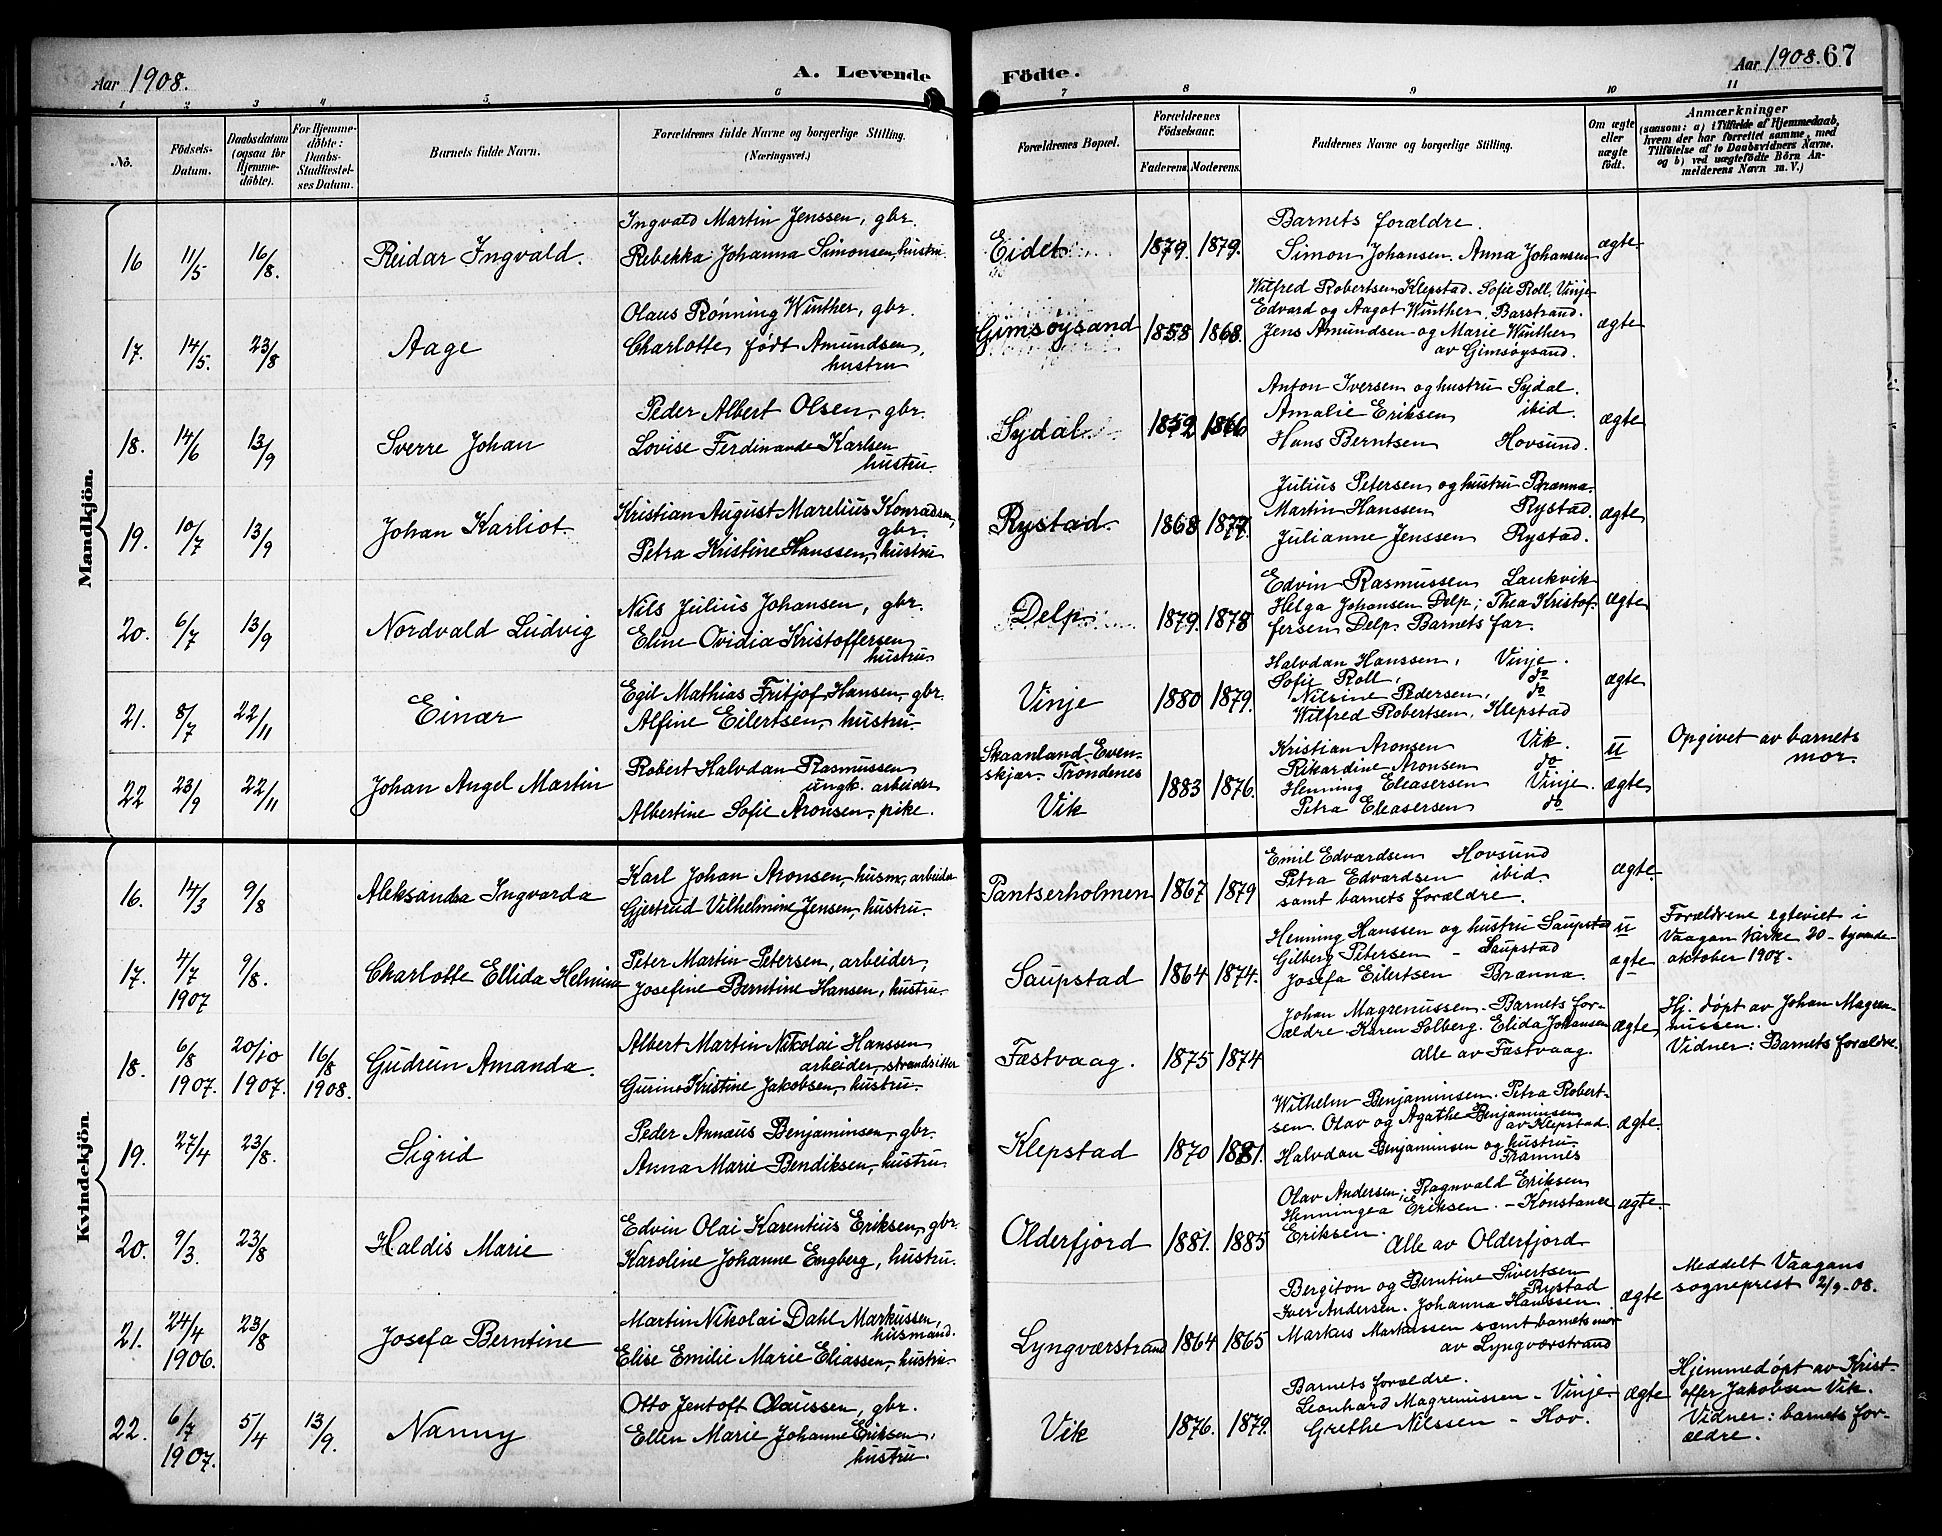 Aar 1908.
A. Levende Födte.
Aar 1908. 67
1 2 3 4 5 6 7 8 9 10 11
No.
Födsels-
Datum.
Daabsdatum
(ogsaa for
Hjemme-
döbte).
For Hjemme-
döbte:
Daabs-
Stadfæstel-
ses Datum.
Barnets fulde Navn.
Forældrenes fulde Navne og borgerlige Stilling.
(Næringsvei.)
Forældrenes Bopæl.
Forældrenes
Födselsaar.
Faderens. Moderens.
Faddernes Navne og borgerlige Stilling.
Om ægte
eller
uægte
født.
Anmærkninger
(saasom: a) i Tilfælde af Hjemmedaab,
hvem der har forrettet samme, med
Tilføielse af to Daabsvidners Navne,
og b) ved uægtefödte Börn An-
melderens Navn m. V.)
Mandkjön.
16 11/5 16/8. Reidar Ingvald.
Ingvald Martin Jenssen, gbr.
Rebekka Johanna Simonsen, hustru
Eidet 1879. 1879.
Barnets forældre.
Simon Johansen. Anna Johansen
ægte
17. 14/5. 23/8 Aage
Olaus Rønning Winther, gbr.
Charlotte født Amundsen,
hustru
Gimsøysand 1858 1868.
Wilfred Robertsen, Klepstad. Sofie Roll, Vinje
Edvard og Aagot Winther, Barstrand.
Jens Amundsen og Marie Winther
av Gimsøysand.
ægte
18. 14/6 13/9 Sverre Johan
Peder Albert Olsen, gbr.
Lovise Ferdinande Karlsen
hustru.
Sydal. 1852 1866
Anton Iversen og hustru Sydal.
Amalie Eriksen ibid.
Hans Berntsen Hovsund.
ægte
19. 10/7 13/9 Johan Karliot.
Kristian August Marelius Konradsen,
gbr.
Petra Kristine Hanssen, hustru
Rystad. 1868 1877.
Julius Petersen og hustru Brænna.
Martin Hanssen Rystad.
Julianne Jenssen Rystad.
ægte
20. 6/7 13/9 Nordvald Ludvig
Nils Julius Johansen, gbr.
Eline Ovidia Kristoffersen
hustru.
Delp 1879. 1878
Edvin Rasmussen Laukvik
Helga Johansen Delp; Thea Kristof-
fersen Delp. Barnets far.
ægte
21. 8/7 22/11 Einar
Egil Mathias Fritjof Hansen, gbr.
Alfine Eilertsen, hustru.
Vinje 1880 1879.
Halvdan Hanssen, Vinje.
Sofie Roll, do
Nilsine Pedersen, do
Wilfred Robertsen, Klepstad
ægte
22 23/9 22/11 Johan Angel Martin
Robert Halvdan Rasmussen
ungk. arbeider
Albertine Sofie Aronsen, pike.
Skaanland Even-
skjær. Trondenes
Vik
1883 1876.
Kristian Aronsen Vik.
Rikardine Aronsen do
Henning Eleasersen Vinje.
Petra Eleasersen do
u
ægte
Opgivet av barnets
mor.
Kvindekjön.
16. 14/3 9/8 Aleksandra Ingvarda
Karl Johan Aronsen, husm, arbeider
Gjertrud Vilhelmine Jensen, hustru.
Pantserholmen 1867 1879
Emil Edvardsen Hovsund
Petra Edvardsen ibid.
samt barnets forældre.
ægte.
17. 4/7 1907 9/8. Charlotte Ellida Helmine
Peter Martin Petersen, arbeider,
Josefine Berntine Hansen, hustru.
Saupstad 1864 1874.
Henning Hanssen og hustru Saupstad
Gilberg Petersen - Saupstad
Josefa Eilertsen Brænna.
u
ægte
Forældrene egteviet i
Vaagan kirke 20-tyvende-
oktober 1907.
18. 6/8 1907. 20/10 1907. 16/8 1908. Gudrun Amanda.
Albert Martin Nikolai Hanssen
arbeider, strandsitter
Gurine Kristine Jakobsen, hustru.
Fæstvaag. 1875 1874
Johan Magrenussen. Barnets for-
ældre. Karen Solberg. Elida Johansen
alle av Fæstvaag.
ægte
Hj. døpt av Johan Magre-
nussen.
Vidner: Barnets forældre.
19. 27/4 23/8. Sigrid
Peder Annæus Benjaminsen, gbr.
Anna Marie Bendiksen, hustru
Klepstad 1870 1881.
Wilhelm Benjaminsen. Petra Robert-
sen. Olav og Agathe Benjaminsen
av Klepstad.
Halvdan Benjaminsen og hustru.
Framnes
ægte.
20. 9/3. 23/8 Haldis Marie
Edvin Olai Karentius Eriksen, gbr.
Karoline Johanne Engberg, hustru.
Olderfjord 1881. 1885
Olav Andersen; Ragnvald Eriksen
Henningea Eriksen. - Konstance
Eriksen.
Alle av Olderfjord.
ægte.
21. 24/4 1906. 23/8 Josefa Berntine
Martin Nikolai Dahl Markussen,
husmand.
Elise Emilie Marie Eliassen, hustru.
Lyngværstrand 1864 1865
Bergiton og Berntine Sivertsen
Rystad
Iver Andersen. Johanna Hanssen
Markus Markussen samt barnets mor
av Lyngværstrand
ægte
Meddelt Vaagans
sogneprest 2/9-08.
22. 6/7 1907. 5/4 13/9. Nanny
Otto Jentoft Olaussen, gbr.
Ellen Marie Johanne Eriksen,
hustru.
Vik 1876. 1879.
Barnets forældre.
Leonhard Magrenussen - Vinje.
Grethe Nilssen - Hov.
ægte
Hjemmedøpt av Krist-
offer Jakobsen Vik.
Vidner: barnets for-
ældre.